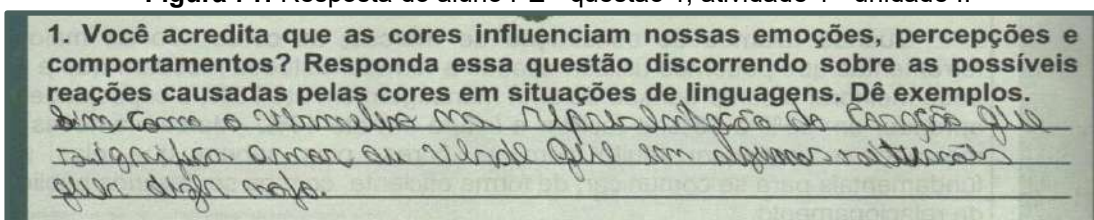 Figura 14: Resposta do aluno PE - questão 1, atividade 1 - unidade II
1. Você acredita que as cores influenciam nossas emoções, percepções e
comportamentos? Responda essa questão discorrendo sobre as possíveis
reações causadas pelas cores em situações de linguagens. Dê exemplos.
Sim, como o vermelho na representação do coração que
significa amor ou verde que em algumas situações
quer dizer nojo.